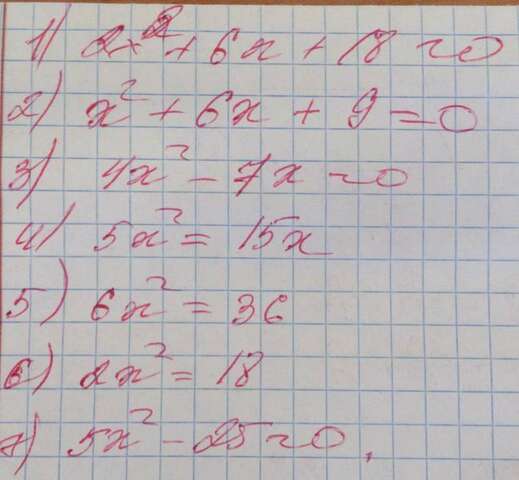 1) 2x² + 6x + 18 = 0
2) x² + 6x + 9 = 0
3) 4x² - 7x = 0
4) 5x² = 15x
5) 6x² = 36
6) 2x² = 18
7) 5x² - 25 = 0.